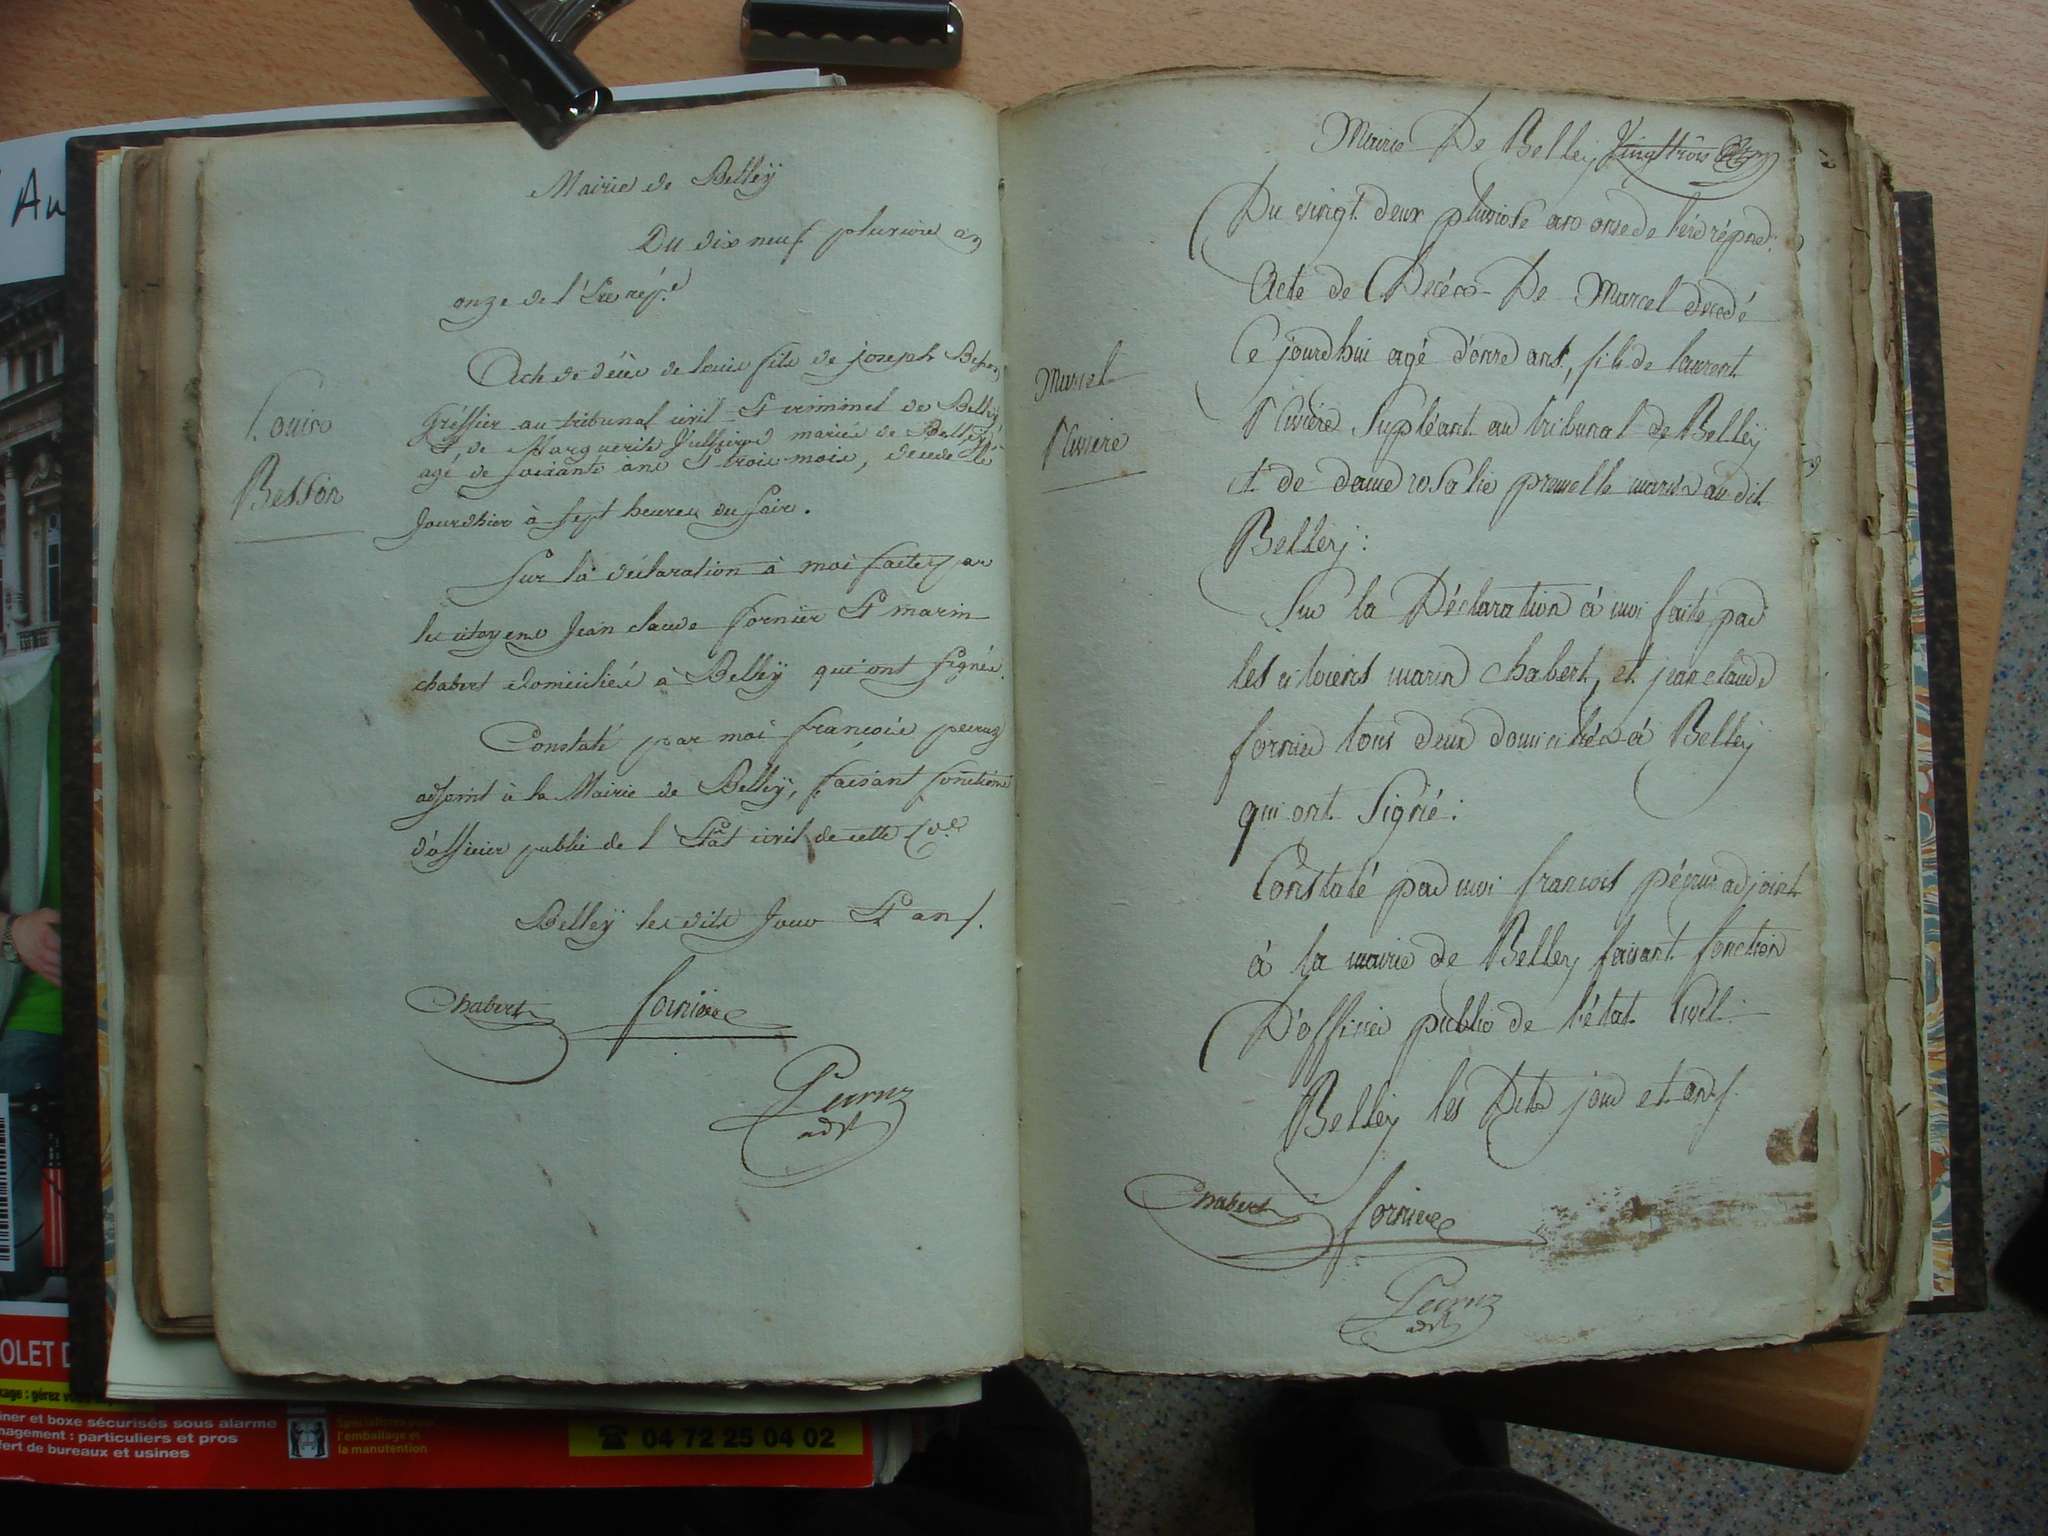 Mairie de Belleÿ
Du dix neuf pluviose an
onze de l'Ere rép.e
Louis
Besson
Acte de décès de louis fils de joseph Besson
Gréffier au tribunal civil Et criminel de Belleÿ
Et de Marguerite mariés de Belleÿ
agé de soixante ans Et trois mois, decedé le
jourdhier à sept heures du soir.
sur la déclaration à moi faite par
les citoyens Jean claude fornier Et marin
chabert domiciliés à Belleÿ qui ont signés.
Constaté par moi françois peeruz
adjoint à la Mairie de Belleÿ, faisant fonctions
d'officier public de l'Etat civil de cette
Belleÿ les dits Jour Et an
Chabert fornier
Peeruz
adjt
Mairie De Belley Vingt trois
Du vingt deux pluviose an onze de l'ére répne.
Acte de Décéos De Marcel decedé
Ce jourdhui agé d'onze ans, fils de laurent
Marcel
Riviere
Riviere Supléant au tribunal de Belleÿ
et de dame rosalie mariés au dit
Belley :
Sur la Déclaration à moi faite par
les citoiens marin Chabert, et jean claude
fornier tous deux domiciliés à Belley
qui ont signé :
Constaté par moi françois péeruz adjoint
à la mairie de Belley faisant fonction
D'officier public de l'état civil
Belley les Dits jour et an
Chabert forniere
Peeruz
adjt
Au
OLET D
kage : gérez
iner et boxe sécurisés sous alarme
nagement : particuliers et pros
fert de bureaux et usines
l'emballage et
la manutention
☎ 04 72 25 04 02